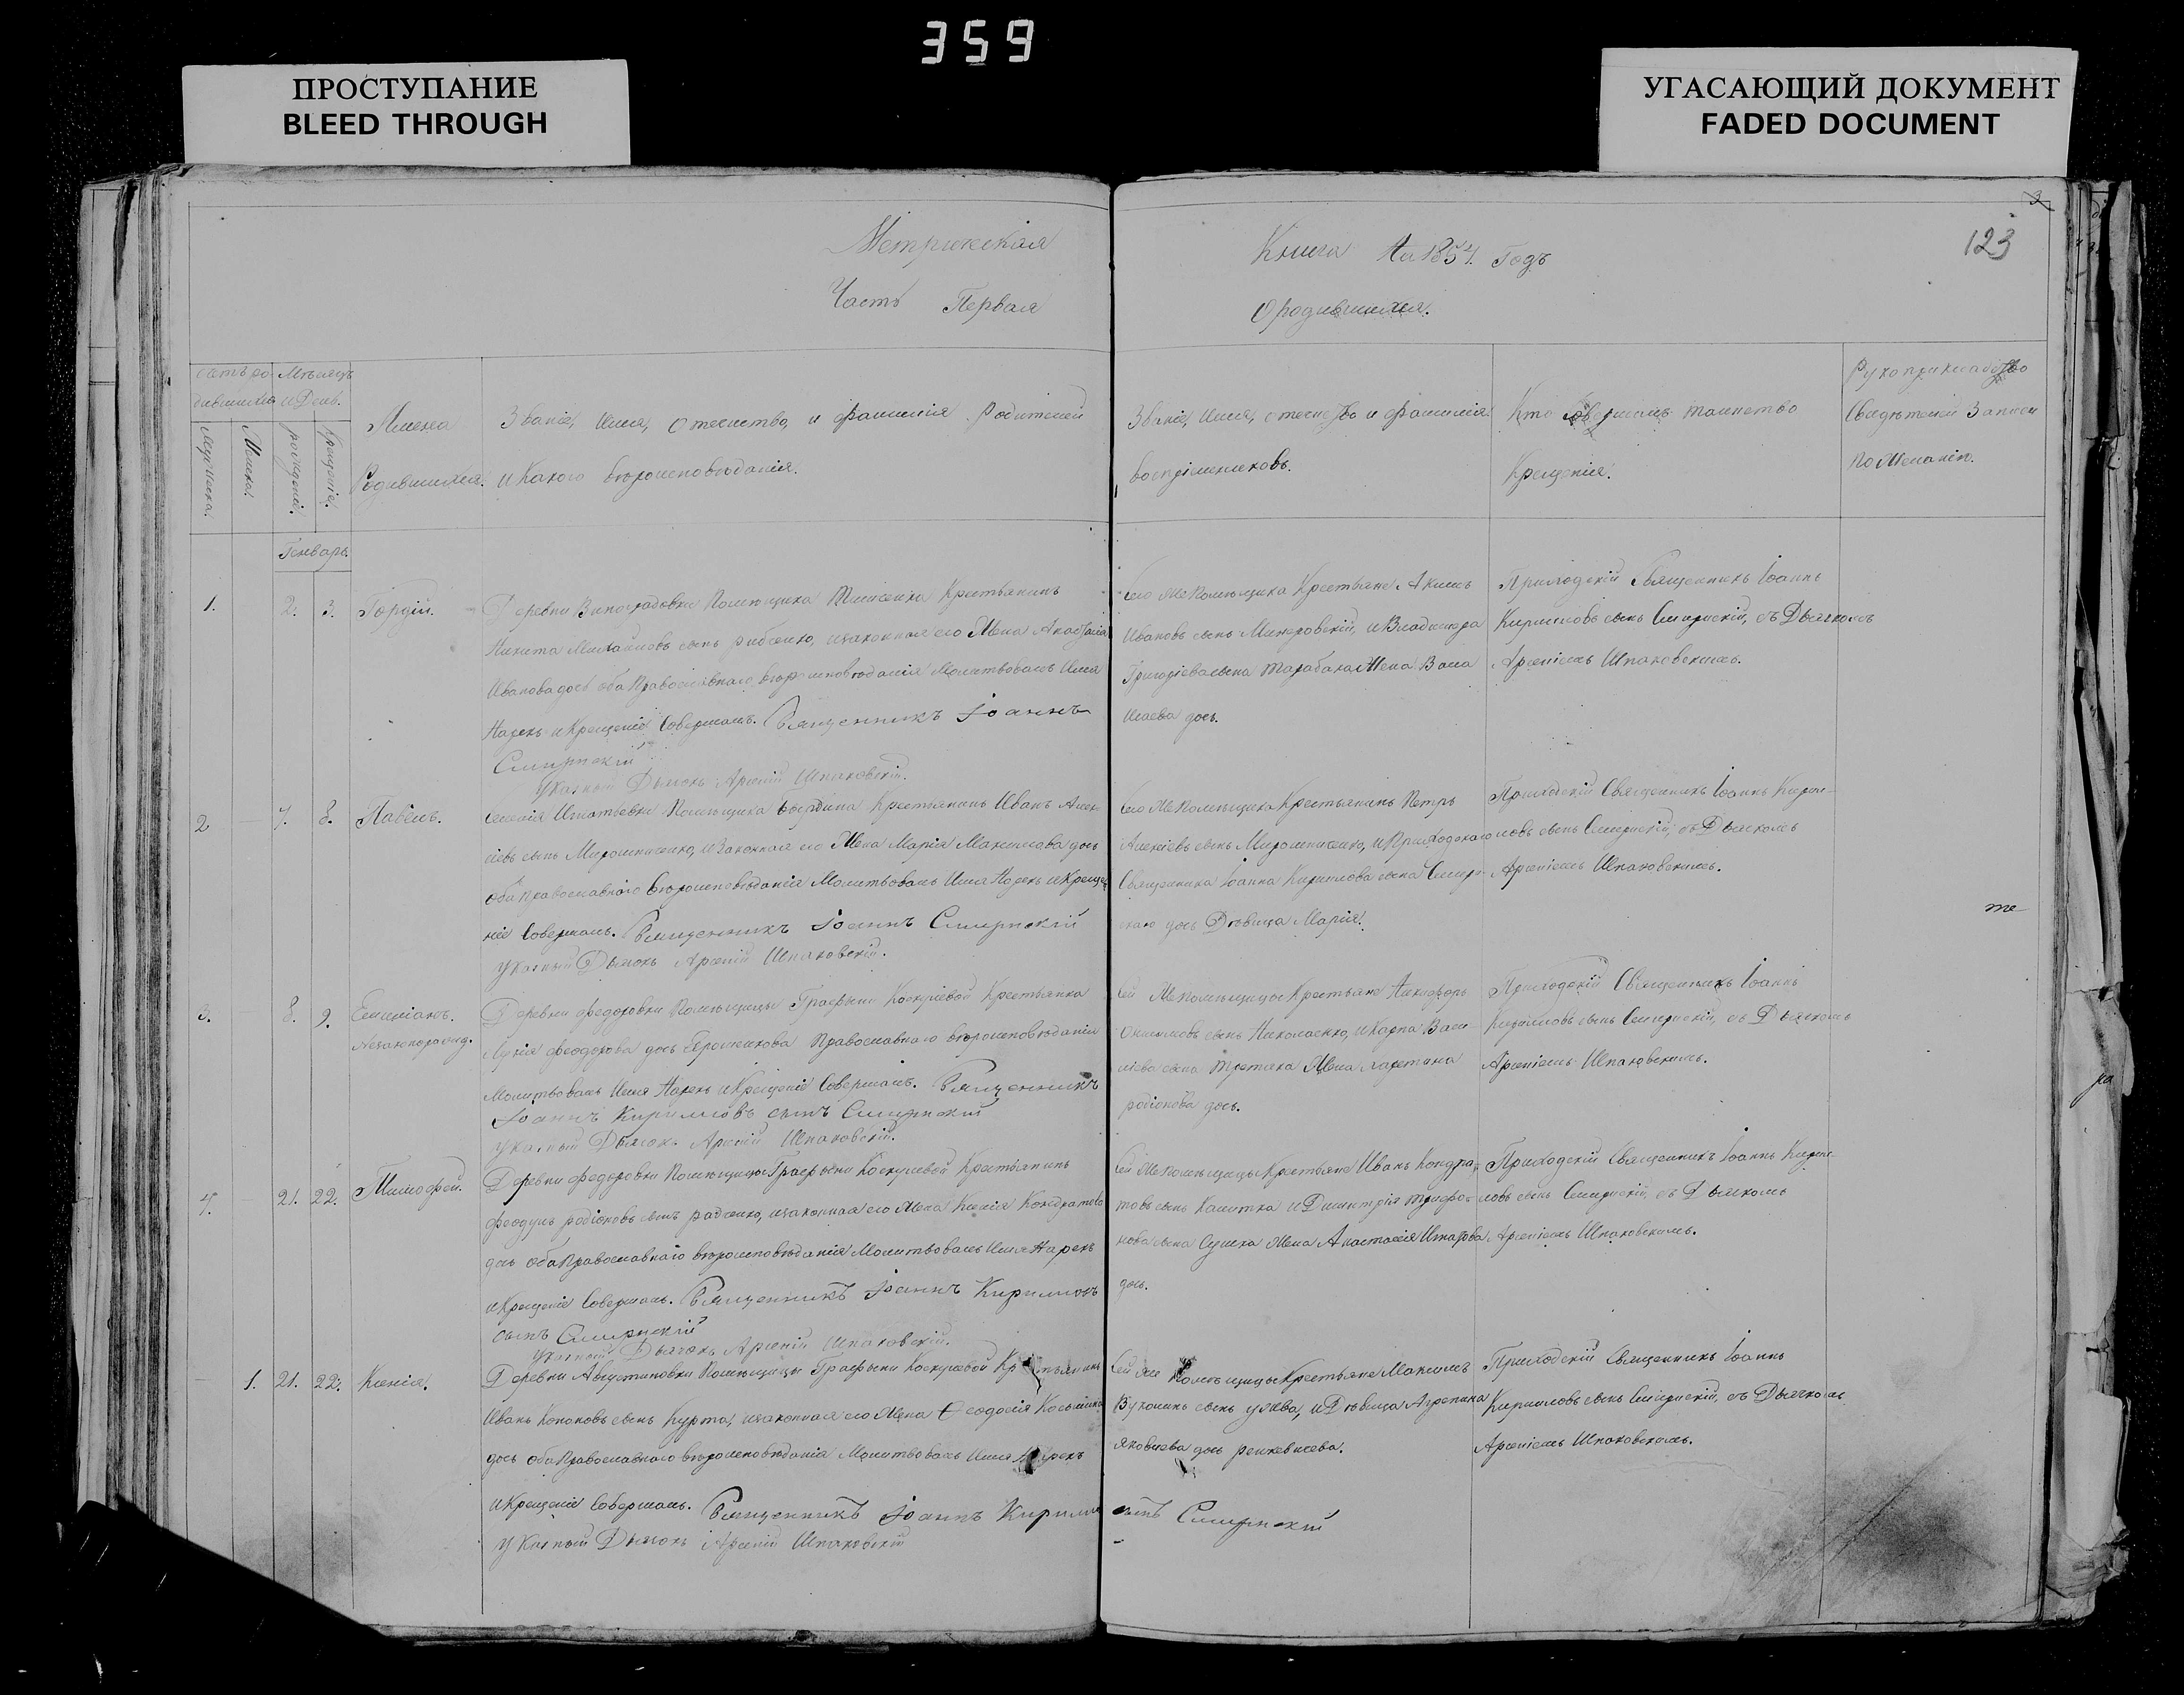 359
ПРОСТУПАНИЕ
BLEED THROUGH
УГАСАЮЩИЙ ДОКУМЕНТ
FADED DOCUMENT
123
Метрическая
Книга На 1854. Годъ
Часть Первая
О родившихся.
счетъ ро-
дившихся
Мѣсяцъ
и День.
Мужеска.
Женска.
рожденія.
Крещенія.
Имена
Родившихся.
Званіе, Имя, отечество, и фамилія Родителей
и Какого вѣроисповѣданія.
Званіе, имя, отечество и фамилія
воспріемниковъ.
Кто совершалъ таинство
Крещенія.
Рукоприкладство
Свидѣтелей Записи
по Желанію.
Генварь.
1.
2. 3.
Гордій.
Деревни Виноградовки Помѣщика Крестьянинъ
Никита Михайловъ сынъ рибенко, изаконная его Жена Анастасія
Иванова дочь оба Православнаго вѣроисповѣданія Молитвовалъ Имя
Нарекъ и Крещеніе Совершалъ. Священникъ Іоаннъ
Смирнскій
Указный Дьячокъ Арсеній Шпаковскій.
Его Же Помѣщика Крестьяне Акимъ
Ивановъ сынъ и Владимера
Григоріева сына Тарабана Жена
Исаева дочь.
Приходскій Священникъ Іоаннъ
Кириловъ сынъ Смирнскій, съ Дьячкомъ
Арсеніемъ Шпаковскимъ.
2
7. 8.
Павелъ.
Селенія Игнатьевки Помѣщика Крестьянинъ Иванъ Алек-
сѣевъ сынъ Мирошниченко, и Законная его Жена Марія Максимова дочь
оба православнаго Вѣроисповѣданія Молитвовалъ Имя Нарекъ и Креще
ніе Совершалъ. Священникъ Іоаннъ Смирнскій
Указный Дьячокъ Арсеній Шпаковскій.
Его Же Помѣщика Крестьянинъ Петръ
Алексѣевъ сынъ Мирошниченко, и Приходскаго
Священника Іоанна Кирилова сына Смирн-
скаго дочь Дѣвица Марія.
Приходскій Священникъ Іоаннъ Кири-
ловъ сынъ Смирнскій, съ Дьячкомъ
Арсеніемъ Шпаковскимъ.
3.
8. 9.
Емиліанъ.
Незаконорожд.
Деревни Федоровки Помѣщицы Графыни Крестьянка
феодорова дочь Православнаго вѣроисповѣданія
Молитвовалъ Имя Нарекъ и Крещеніе Совершалъ. Священникъ
Іоаннъ Кириловъ сынъ Смирнскій
Указный Дьячокъ Арсеній Шпаковскій.
Сей Же Помѣщицы Крестьяне Никифоръ
сынъ Николаенко, и Карпа Васи-
ліева сына Третяка Жена
родіонова дочь.
Приходскій Священникъ Іоаннъ
Кириловъ сынъ Смирнскій, съ Дьячкомъ
Арсеніемъ Шпаковскимъ.
4.
21. 22.
Тимофей.
Деревни Федоровки Помѣщицы Графыни Крестьянинъ
феодулъ родіоновъ сынъ радченко, изаконная его Жена Ксенія Кондратова
дочь оба Православнаго вѣроисповѣданія Молитвовалъ Имя Нарекъ
и Крещеніе Совершалъ. Священникъ Іоаннъ Кириловъ
сынъ Смирнскій
Указный Дьячокъ Арсеній Шпаковскій.
Сей Же Помѣщицы Крестьяне Иванъ Кондра-
товъ сынъ Калитка и Димитрія Трифо-
нова сына Сушка Жена Анастасія
дочь.
Приходскій Священникъ Іоаннъ Кири-
ловъ сынъ Смирнскій, съ Дьячкомъ
Арсеніемъ Шпаковскимъ.
1. 21. 22.
Ксенія.
Деревни Августиновки Помѣщицы Графыни Крестьянинъ
Иванъ Кононовъ сынъ Курта, изаконная его Жена Феодосія
дочь оба Православнаго вѣроисповѣданія Молитвовалъ Имя Нарекъ
и Крещеніе Совершалъ. Священникъ Іоаннъ Кирилов сынъ Смирнскій
Указный Дьячокъ Арсеній Шпаковскій
Сей Же Помѣщицы Крестьяне Максимъ
сынъ и Дѣвица Агрепина
Яковлева дочь
Приходскій Священникъ Іоаннъ
Кириловъ сынъ Смирнскій, съ Дьячкомъ
Арсеніемъ Шпаковскимъ.